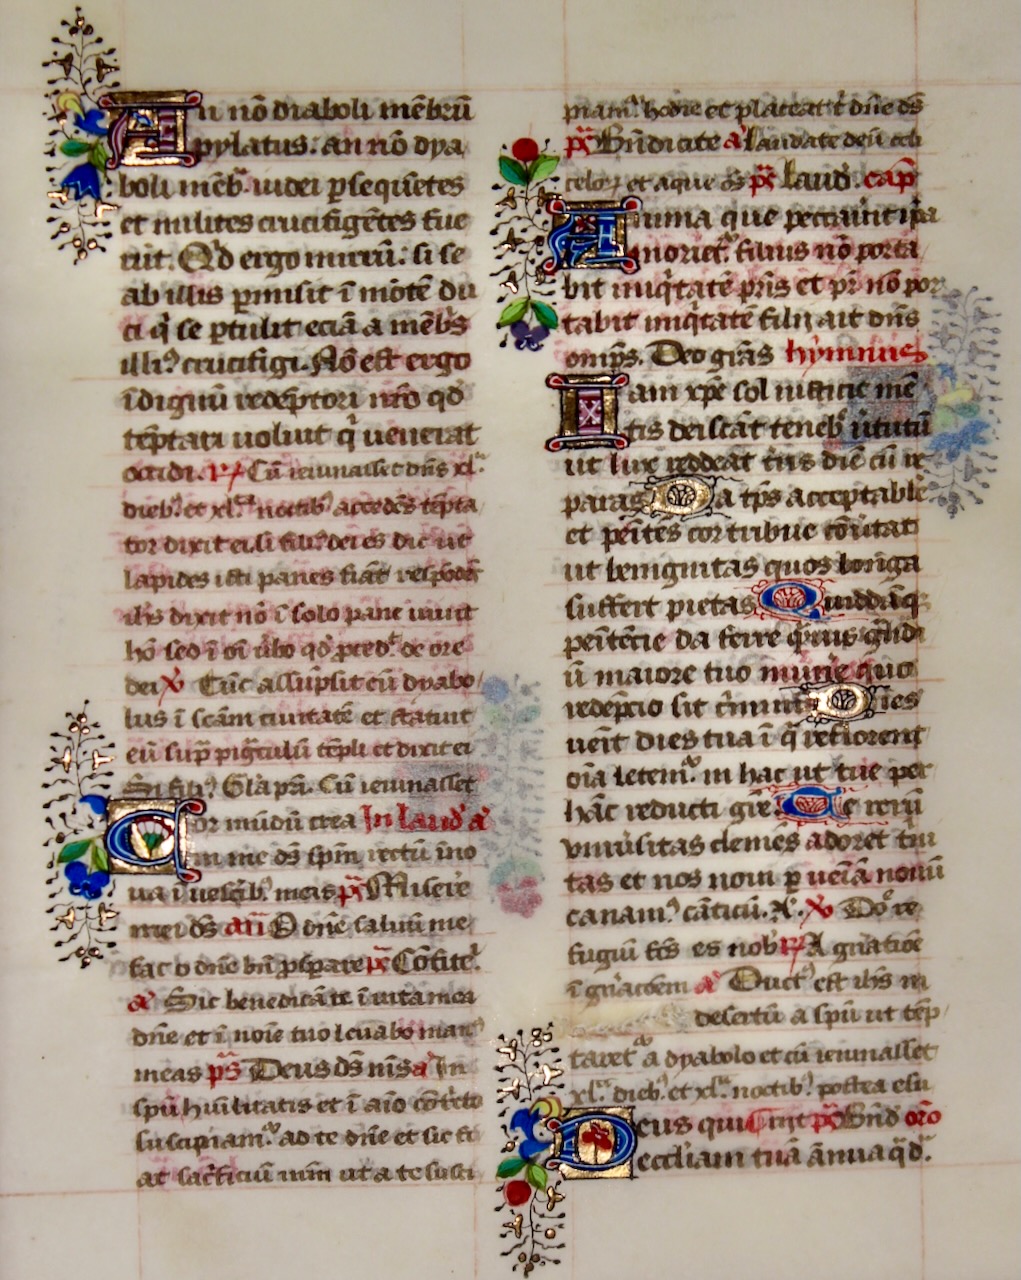 An nō diaboli mēbrū
pylatus. an nō dya
boli mēbʳ. iudei ꝑsequētes
et milites crucifigētes fue
rūt. Qd̄ ergo mirū: si se
ab illis ꝑmisit ī mōtē du
ci qͥ se ꝑtulit eciā a mēbʳs
illiꝰ crucifigi. Nō est ergo
īdignū redēptori nr̄o qd̄
tēptari uoluit qͥ uenerat
occidi. ℟ Cū ieiunasset dn̄s xl.
diebꝰ. et xl. noctibꝰ accedēs tēpta
tor dixit ei. si filiꝰ dei es dic ut
lapides isti panes fiāt respōdēs
ih̄s dixit nō ī solo pane uiuit
hō sed ī oī ūbo qd̄ ꝓced. de ore
dei ℣ Tūc assūpsit eū dyabo
lus ī scām ciuitatē et statuit
eū supͣ pīnaculū tēpli et dixit ei
Si filiꝰ. Gl̄a pr̄i. Cū ieiunasset
Cor mūdū crea In laud̄ a
in me dš spm̄ rectū īno
ua ī uescībꝰ meis pš Misere
mei dš an̄ O dn̄e saluū me
fac o dn̄e bn̄ ꝓsꝑare pš Cōfitēꝰ.
a Sic benedicā te ī uita mea
dn̄e et ī noīe tuo leuabo manꝰ
meas pš Deus dš mš a In
spū huīlitatis et ī aīo cōtͥto
suscipiamͬ ad te dn̄e et sic fi
at sacͥficiū nr̄m ut a te susci
piatͬ hodie et placeat tͥ dn̄e dš
pš Bn̄dicite a Laudate deū celi
celoꝝ et aque om̄s pš Laud̄. cap̄
Anima que peccauīt ip̄a
morietͬ. filius nō porta
bit iniqͥtatē pr̄is et pr̄ nō por
tabit iniqͥtatē filii ait dn̄s
omp̄s. Deo grās hymnus
Iam xp̄e sol iusticie mē
tis deiscāt tenebͬ ūtutū
ut lux reddeat tr̄is diē cū re
paras Da tp̄s acceptabile
et pēitēs cor tribue cōuītat
ut benignitas quos lōnga
suffert pietas Quiddāqꝫ
pēitēcie da ferre qͣuis gͣndi
ū maiore tuo muñe quo
redēpcio sit cͥminis Dies
uēit dies tua ī qͣ reflorent
oīa letemͬ in hac ut tue per
hāc reducti gr̄e Te rerū
vniūsitas clemēs adoret tri
tas et nos noui ꝑ ueīā nouū
canamꝰ cāticū. A. ℣ Dōe re
fugiū fc̄s es nobͥ ℟ A gn̄atiōe
ī gn̄acōem a Ductꝰ est ih̄s in
desertū a spū ut tēp
taretͬ a dyabolo et cū ieiunasset
xl. diebꝰ. et xl. noctibꝰ. postea esu
Deus qui pš Bn̄d oro
eccl̄iam tuā ānua qd̄.